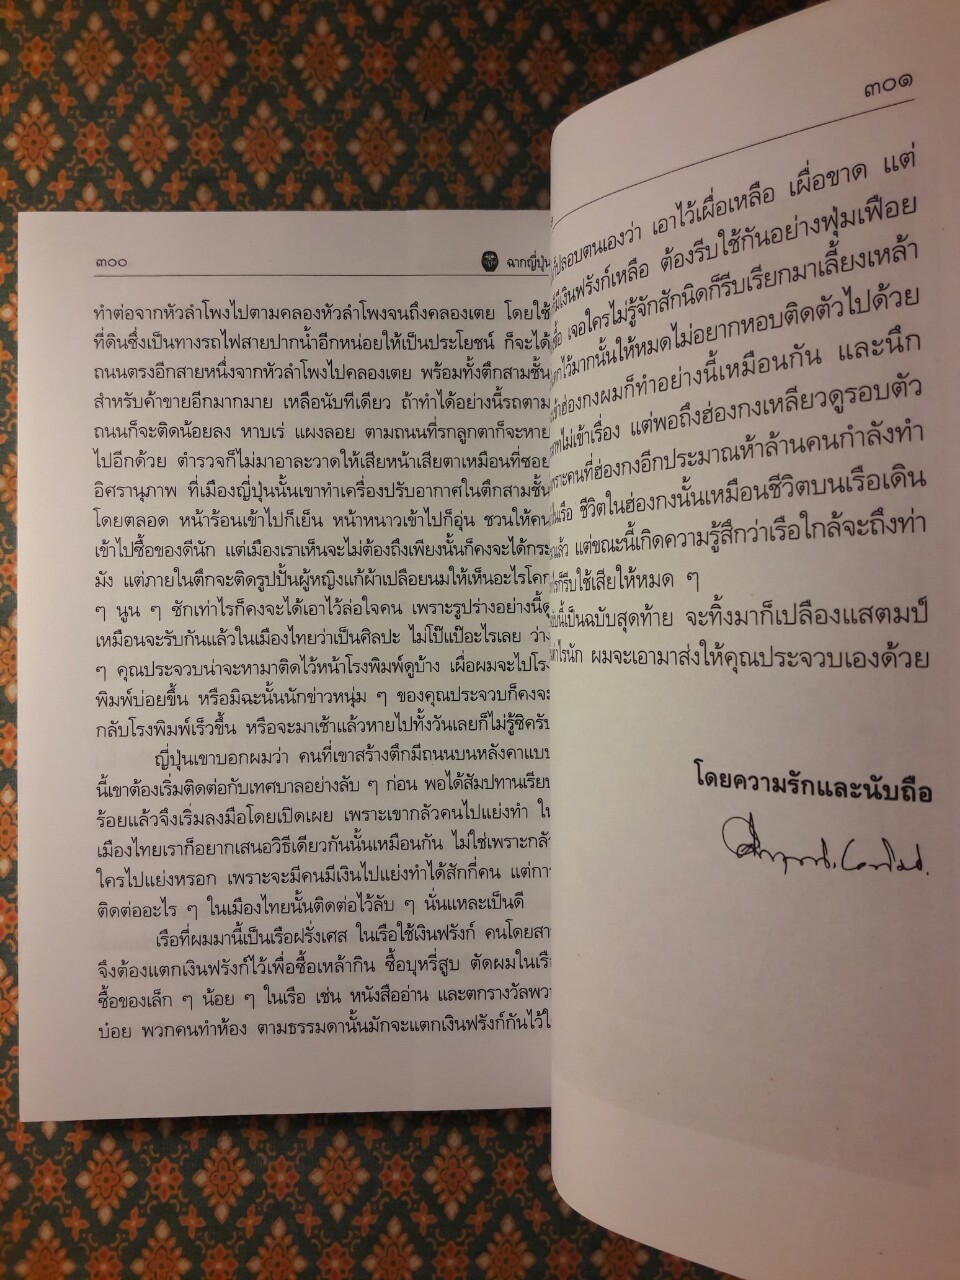 ๓๐๐
ฉากญี่ปุ่น
ทำต่อจากหัวลำโพงไปตามคลองหัวลำโพงจนถึงคลองเตย โดยใช้
ที่ดินซึ่งเป็นทางรถไฟสายปากน้ำอีกหน่อยให้เป็นประโยชน์ ก็จะได้
ถนนตรงอีกสายหนึ่งจากหัวลำโพงไปคลองเตย พร้อมทั้งตึกสามชั้น
สำหรับค้าขายอีกมากมาย เหลือนับทีเดียว ถ้าทำได้อย่างนี้รถตาม
ถนนก็จะติดน้อยลง หาบเร่ แผงลอย ตามถนนที่รกลูกตาก็จะหาย
ไปอีกด้วย ตำรวจก็ไม่มาอาละวาดให้เสียหน้าเสียตาเหมือนที่ซอย
อิศรานุภาพ ที่เมืองญี่ปุ่นนั้นเขาทำเครื่องปรับอากาศในตึกสามชั้น
โดยตลอด หน้าร้อนเข้าไปก็เย็น หน้าหนาวเข้าไปก็อุ่น ชวนให้คน
เข้าไปซื้อของดีนัก แต่เมืองเราเห็นจะไม่ต้องถึงเพียงนั้นก็คงจะได้กระ
มัง แต่ภายในตึกจะติดรูปปั้นผู้หญิงแก้ผ้าเปลือยนมให้เห็นอะไรโคก
ๆ นูน ๆ ซักเท่าไรก็คงจะได้เอาไว้ล่อใจคน เพราะรูปร่างอย่างนี้ดู
เหมือนจะรับกันแล้วในเมืองไทยว่าเป็นศิลปะ ไม่โป๊แป๊อะไรเลย ว่าง
ๆ คุณประจวบน่าจะหามาติดไว้หน้าโรงพิมพ์ดูบ้าง เผื่อผมจะไปโรง
พิมพ์บ่อยขึ้น หรือมิฉะนั้นนักข่าวหนุ่ม ๆ ของคุณประจวบก็คงจะ
กลับโรงพิมพ์เร็วขึ้น หรือจะมาเช้าแล้วหายไปทั้งวันเลยก็ไม่รู้ซิครับ
ญี่ปุ่นเขาบอกผมว่า คนที่เขาสร้างตึกมีถนนบนหลังคาแบบ
นี้เขาต้องเริ่มติดต่อกับเทศบาลอย่างลับ ๆ ก่อน พอได้สัมปทานเรียบ
ร้อยแล้วจึงเริ่มลงมือโดยเปิดเผย เพราะเขากลัวคนไปแย่งทำ ใน
เมืองไทยเราก็อยากเสนอวิธีเดียวกันนั้นเหมือนกัน ไม่ใช่เพราะกลัว
ใครไปแย่งหรอก เพราะจะมีคนมีเงินไปแย่งทำได้สักกี่คน แต่การ
ติดต่ออะไร ๆ ในเมืองไทยนั้นติดต่อไว้ลับ ๆ นั่นแหละเป็นดี
เรือที่ผมมานี้เป็นเรือฝรั่งเศส ในเรือใช้เงินฟรังก์ คนโดยสาร
จึงต้องแตกเงินฟรังก์ไว้เพื่อซื้อเหล้ากิน ซื้อบุหรี่สูบ ตัดผมในเรือ
ซื้อของเล็ก ๆ น้อย ๆ ในเรือ เช่น หนังสืออ่าน และตกรางวัลพวก
บ๋อย พวกคนทำห้อง ตามธรรมดานั้นมักจะแตกเงินฟรังก์กันไว้ให้
๓๐๑
ปลอบตนเองว่า เอาไว้เผื่อเหลือ เผื่อขาด แต่
มีเงินฟรังก์เหลือ ต้องรีบใช้กันอย่างฟุ่มเฟือย
เจอใครไม่รู้จักสักนิดก็รีบเรียกมาเลี้ยงเหล้า
ไว้มากนั้นให้หมดไม่อยากหอบติดตัวไปด้วย
ฮ่องกงผมก็ทำอย่างนี้เหมือนกัน และนึก
ไม่เข้าเรื่อง แต่พอถึงฮ่องกงเหลียวดูรอบตัว
คนที่ฮ่องกงอีกประมาณห้าล้านคนกำลังทำ
ชีวิตในฮ่องกงนั้นเหมือนชีวิตบนเรือเดิน
แล้ว แต่ขณะนี้เกิดความรู้สึกว่าเรือใกล้จะถึงท่า
ก็รีบใช้เสียให้หมด ๆ
นี้เป็นฉบับสุดท้าย จะทิ้งมาก็เปลืองแสตมป์
ไรนัก ผมจะเอามาส่งให้คุณประจวบเองด้วย
โดยความรักและนับถือ